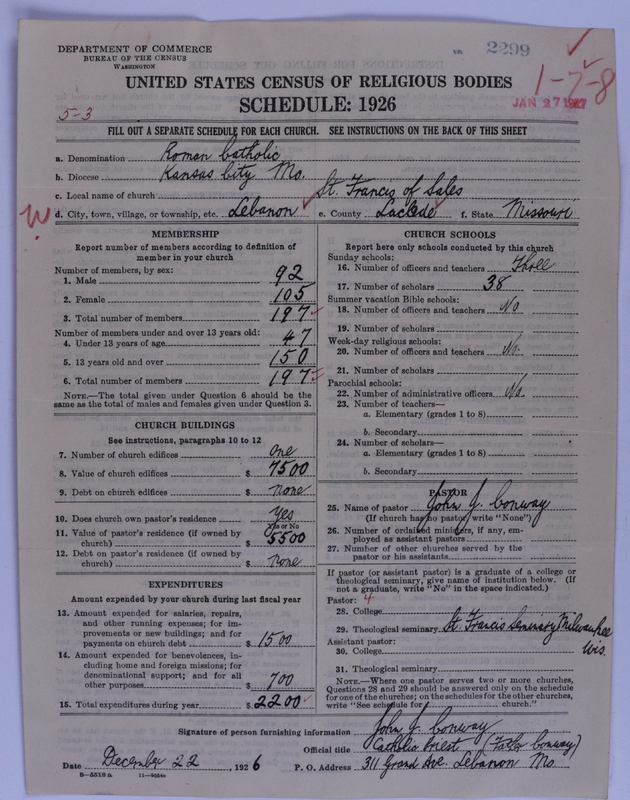 DEPARTMENT OF COMMERCE
BUREAU OF THE CENSUS
WASHINGTON
2299
1-7-8
JAN 27 1927
UNITED STATES CENSUS OF RELIGIOUS BODIES
SCHEDULE: 1926
5-3
FILL OUT A SEPARATE SCHEDULE FOR EACH CHURCH. SEE INSTRUCTIONS ON THE BACK OF THIS SHEET
a. Denomination Roman Catholic
b. Diocese Kansas City Mo.
c. Local name of church St. Francis of Sales
d. City, town, village, or township, etc. Lebanon e. County Laclede f. State Missouri
W
MEMBERSHIP
Report number of members according to definition of member in your church
Number of members, by sex:
1. Male 92
2. Female 105
3. Total number of members 197
Number of members under and over 13 years old:
4. Under 13 years of age 47
5. 13 years old and over 150
6. Total number of members 197
NOTE.—The total given under Question 6 should be the
same as the total of males and females given under Question 3.
CHURCH BUILDINGS
See instructions, paragraphs 10 to 12
7. Number of church edifices One
8. Value of church edifices $ 7500
9. Debt on church edifices $ None
10. Does church own pastor's residence Yes
Yes or No
11. Value of pastor's residence (if owned by
church) $ 5500
12. Debt on pastor's residence (if owned by
church) $ None
EXPENDITURES
Amount expended by your church during last fiscal year
13. Amount expended for salaries, repairs,
and other running expenses; for im-
provements or new buildings; and for
payments on church debt $ 1500
14. Amount expended for benevolences, in-
cluding home and foreign missions; for
denominational support; and for all
other purposes $ 700
15. Total expenditures during year $ 2200
CHURCH SCHOOLS
Report here only schools conducted by this church
Sunday schools:
16. Number of officers and teachers Three
17. Number of scholars 38
Summer vacation Bible schools:
18. Number of officers and teachers No
19. Number of scholars
Week-day religious schools:
20. Number of officers and teachers No.
21. Number of scholars
Parochial schools:
22. Number of administrative officers No.
23. Number of teachers—
a. Elementary (grades 1 to 8)
b. Secondary
24. Number of scholars—
a. Elementary (grades 1 to 8)
b. Secondary
PASTOR
25. Name of pastor John J. Conway
(If church has no pastor, write "None")
26. Number of ordained ministers, if any, em-
ployed as assistant pastors
27. Number of other churches served by the
pastor or his assistants
If pastor (or assistant pastor) is a graduate of a college or
theological seminary, give name of institution below. (If
not a graduate, write "No" in the space indicated.)
Pastor: 4
28. College
29. Theological seminary St. Francis Seminary Milwaukee
Wis.
Assistant pastor:
30. College
31. Theological seminary
NOTE.—Where one pastor serves two or more churches,
Questions 28 and 29 should be answered only on the schedule
for one of the churches; on the schedules for the other churches,
write "See schedule for church."
Signature of person furnishing information John J. Conway
Official title Catholic Priest (Father Conway)
Date December 22, 1926 P. O. Address 311 Grand Ave. Lebanon Mo.
8-5518a